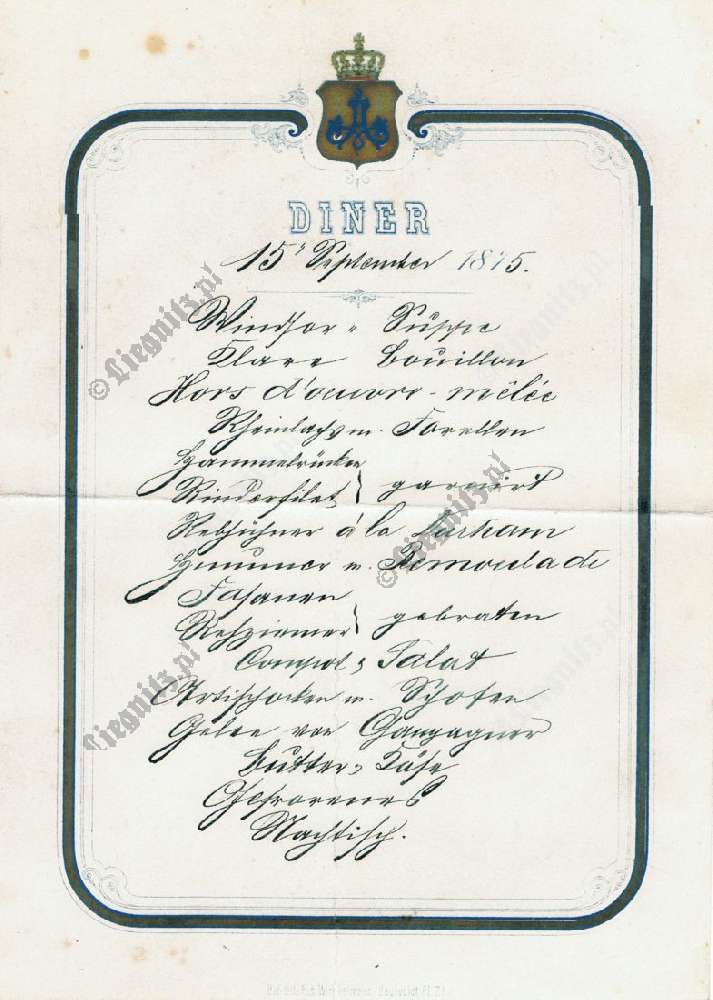 DINER
15t September 1875.
Windsor-Suppe
Klare Bouillon
Hors d'œuvre-mêlée
Rheinlachs u. Forellen
Hammelrücken
Rinderfilet } garnirt
Rebhühner à la
Hummer m. Remoulade
Fasanen
Rehziemer } gebraten
Compot, Salat
Artischocken m. Schoten
Gelee von Champagner
Butter, Käse
Gefrorenes
Nachtisch.
© Liegnitz.pl
© Liegnitz.pl
Liegnitz.pl